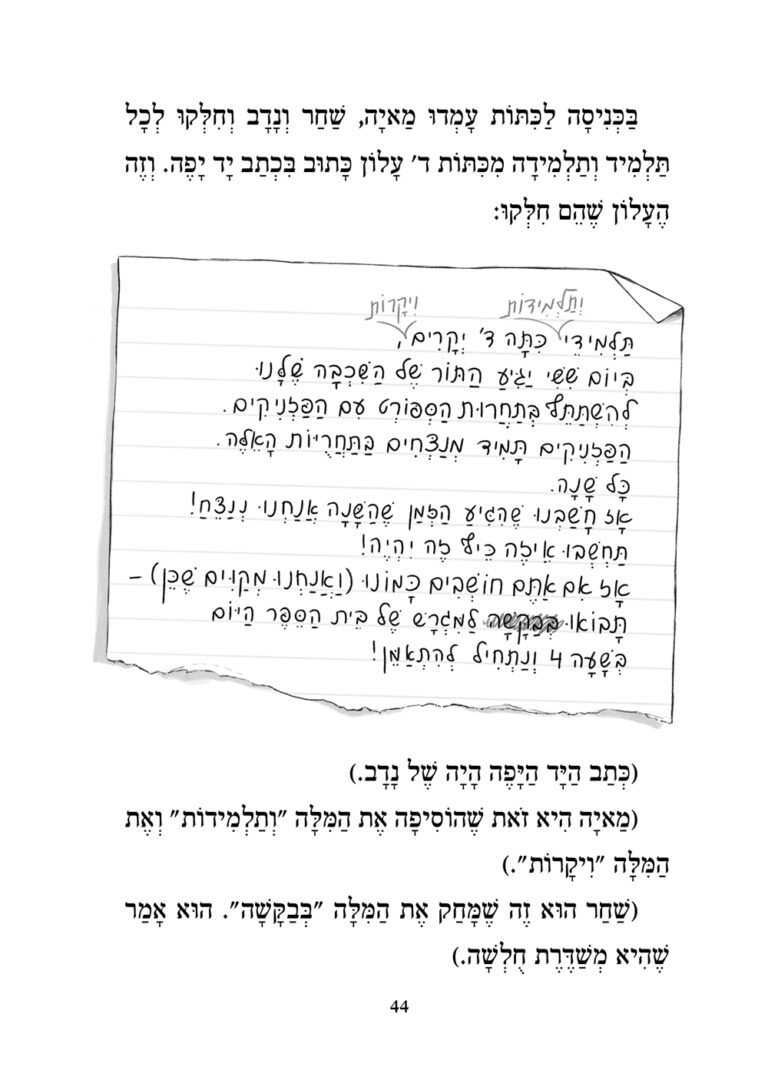 בַּכְּנִיסָה לַכִּתּוֹת עָמְדוּ מַאיָה, שַׁחַר וְנָדָב וְחִלְּקוּ לְכָל
תַּלְמִיד וְתַלְמִידָה מִכִּתּוֹת ד׳ עָלוֹן כָּתוּב בִּכְתַב יָד יָפֶה. וְזֶה
הֶעָלוֹן שֶׁהֵם חִלְּקוּ:
וְתַלְמִידוֹת וִיקָרוֹת
תַּלְמִידֵי כִּתָּה ד׳ יְקָרִים,
בְּיוֹם שִׁשִּׁי יַגִּיעַ הַתּוֹר שֶׁל הַשִּׁכְבָה שֶׁלָּנוּ
לְהִשְׁתַּתֵּף בְּתַחֲרוּת הַסְּפּוֹרְט עִם הַפַּזְנִיקִים.
הַפַּזְנִיקִים תָּמִיד מְנַצְּחִים בַּתַּחֲרֻיּוֹת הָאֵלֶּה.
כָּל שָׁנָה.
אָז חָשַׁבְנוּ שֶׁהִגִּיעַ הַזְּמַן שֶׁהַשָּׁנָה אֲנַחְנוּ נְנַצֵּחַ!
תַּחְשְׁבוּ אֵיזֶה כֵּיף זֶה יִהְיֶה!
אָז אִם אַתֶּם חוֹשְׁבִים כָּמוֹנוּ (וַאֲנַחְנוּ מְקַוִּים שֶׁכֵּן) –
תָּבוֹאוּ בְּבַקָּשָׁה לַמִּגְרָשׁ שֶׁל בֵּית הַסֵּפֶר הַיּוֹם
בְּשָׁעָה 4 וְנַתְחִיל לְהִתְאַמֵּן!
(כְּתַב הַיָּד הַיָּפֶה הָיָה שֶׁל נָדָב.)
(מַאיָה הִיא זֹאת שֶׁהוֹסִיפָה אֶת הַמִּלָּה "וְתַלְמִידוֹת" וְאֶת
הַמִּלָּה "וִיקָרוֹת".)
(שַׁחַר הוּא זֶה שֶׁמָּחַק אֶת הַמִּלָּה "בְּבַקָּשָׁה". הוּא אָמַר
שֶׁהִיא מְשַׁדֶּרֶת חֻלְשָׁה.)
44